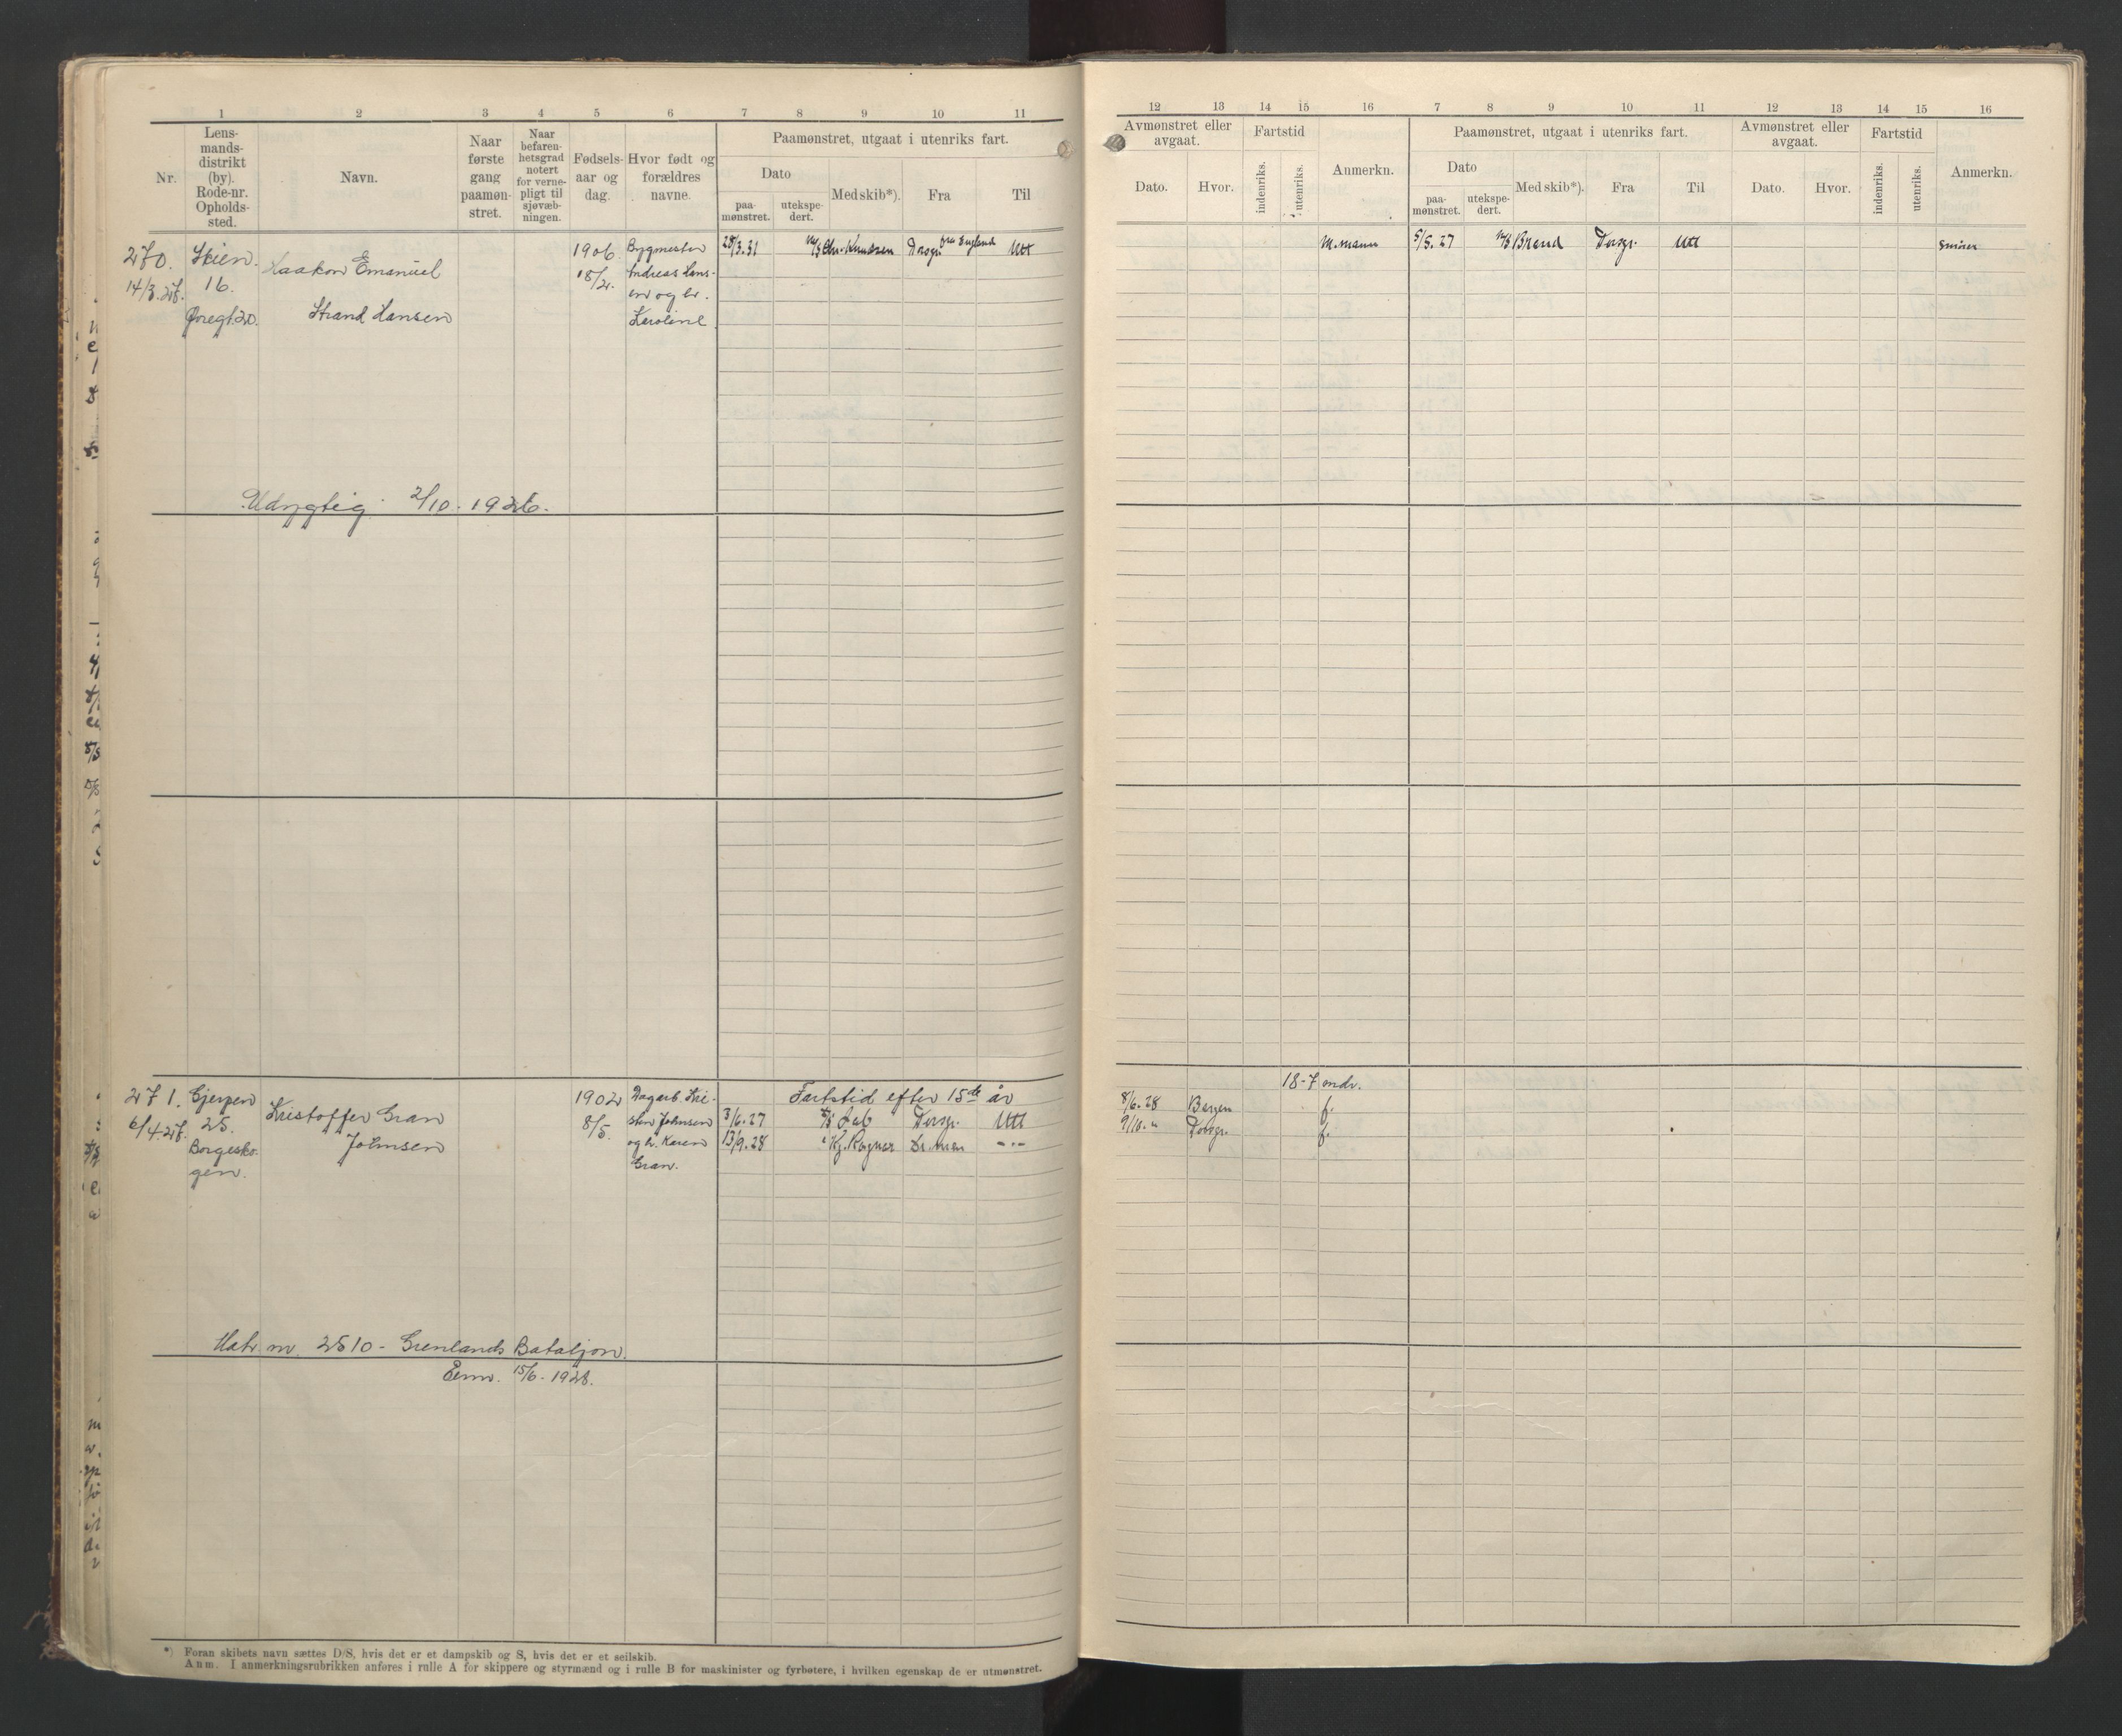 1 2 3 4 5 6 7 8 9 10 11
Nr.
Lens-
mands-
distrikt
(by).
Rode-nr.
Opholds-
sted.
Navn.
Naar
første
gang
paamøn-
stret.
Naar
befaren-
hetsgrad
notert
for verne-
pligt til
sjøvæb-
ningen.
Fødsels-
aar og
dag.
Hvor født og
forældres
navne.
Paamønstret, utgaat i utenriks fart.
Dato
paa-
mønstret.
utekspe-
dert.
Med skib*).
Fra
Til
270.
14/3.27.
Skien.
16.
Øvregt. 20.
Haakon Emanuel
Strand Hansen
1906
18/2.
Bygmester
Andreas Hans-
en og h.
Karoline
28/3.31 M/S Chr. Knudsen Porsgr. fra England Utt
Udygtig 2/10. 1926.
271.
6/4.27.
Gjerpen
25.
Borgesko-
gen.
Kristoffer Gran
Johnsen
1902
8/5.
Dagarb. Kri-
sten Johnsen
og h. Karen
Gran.
Fartstid efter 15de år
3/6.27 Porsgr. Utt
13/9.28 Kg. Ragnar Dr.men - " -
Matr. nr. 2510 - Grenlands Bataljon.
15/6 - 1928.
*) Foran skibets navn sættes D/S, hvis det er et dampskib og S, hvis det er et seilskib.
Anm. I anmerkningsrubrikken anføres i rulle A for skippere og styrmænd og i rulle B for maskinister og fyrbøtere, i hvilken egenskap de er utmønstret.
12 13 14 15 16 7 8 9 10 11 12 13 14 15 16
Avmønstret eller
avgaat.
Dato.
Hvor.
Fartstid
indenriks.
utenriks.
Anmerkn.
Paamønstret, utgaat i utenriks fart.
Dato
paa-
mønstret.
utekspe-
dert.
Med skib*).
Fra
Til
Avmønstret eller
avgaat.
Dato.
Hvor.
Fartstid
indenriks.
utenriks.
Anmerkn.
M.mann 5/5.27 M/S Brand Porsgr. Utt smører
18-7 mdr.
8/6.28 Bergen f.
9/10. " Porsgr. f.